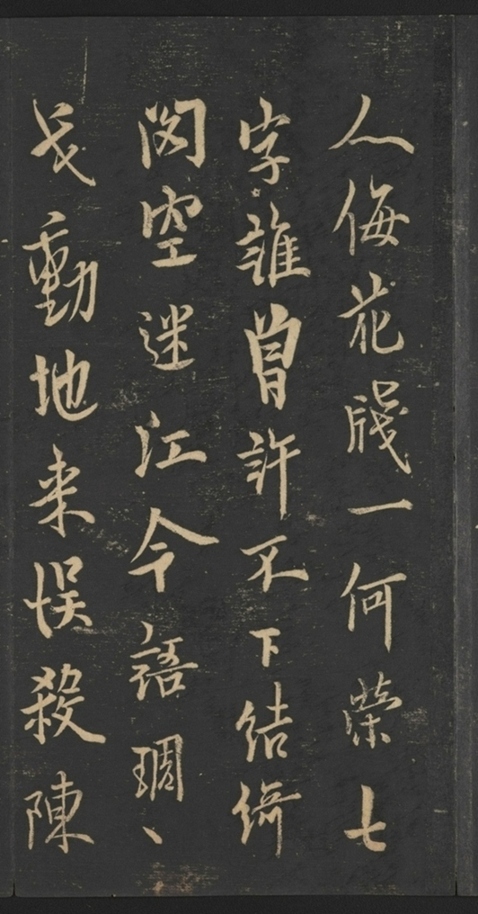 人侮花牋一何榮七
字誰曾許不下結綺
閣空迷江令語琱
戈動地来悞殺陳